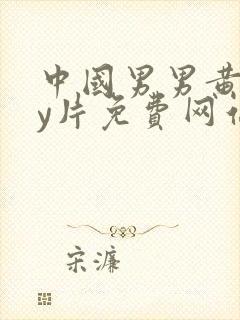 中國男男黄
y片免費网
宋濂